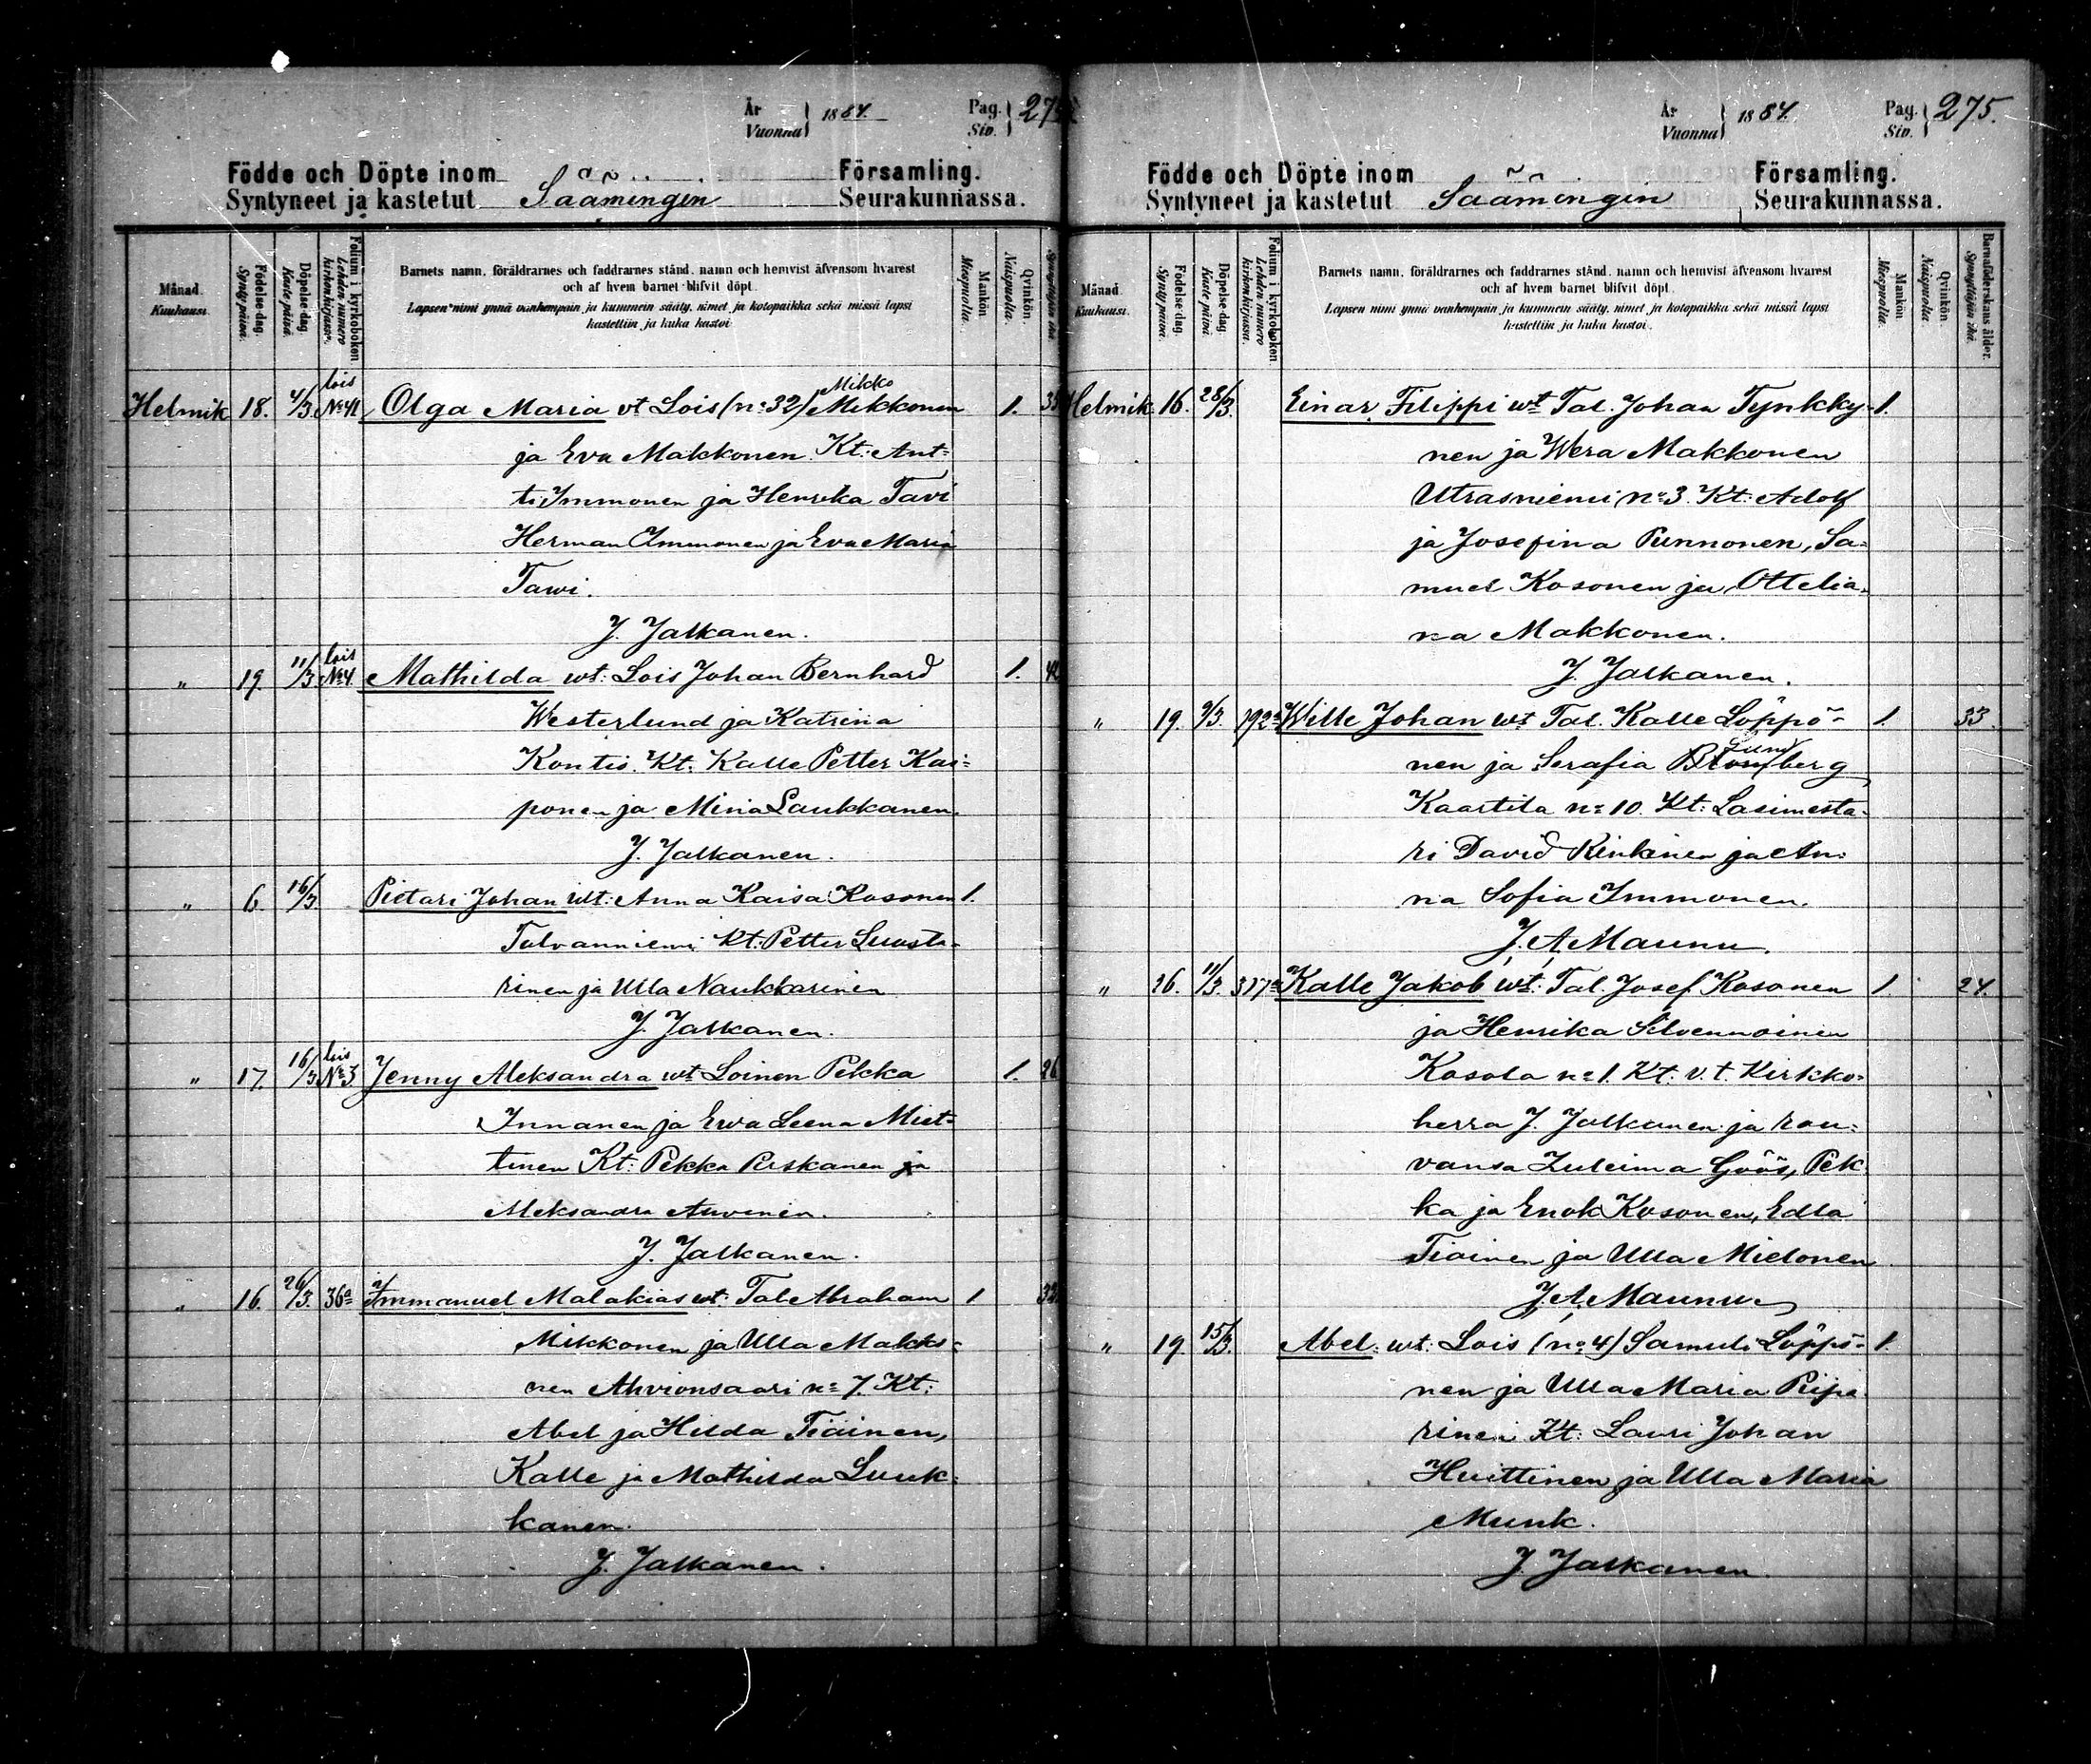 År
Vuonna } 1884. Pag.
Siv. } 27
Födde och Döpte inom Församling.
Syntyneet ja kastetut Säämingin Seurakunnassa.
Månad. Kuukausi.
Födelse dag. Synty päivä.
Döpelse dag. Kaste päivä.
Folium i kyrkoboken Lehden numero kirkonkirjassa.
Barnets namn, föräldrarnes och faddrarnes stånd, namn och hemvist äfvensom hvarest
och af hvem barnet blifvit döpt.
Lapsen nimi ynnä vanhempain ja kummein sääty, nimet ja kotopaikka sekä missä lapsi
kastettiin ja kuka kastoi.
Mankön Miespuolia.
Qvinkön. Naispuolia.
Helmik 18. 4/3. lois No 41 Olga Maria vt Lois (no 32) Mikko Mikkonen 1. 35
ja Eva Makkonen. Kt: Ant-
ti Immonen ja Henrika Tavi
Herman Immonen ja Eva Maria
Tawi.
J. Jalkanen.
" 19. 11/3 lois No 4. Mathilda wt: Lois Johan Bernhard 1.
Westerlund ja Katrina
Kontio. Kt: Kalle Petter Kai-
ponen ja Miina Laukkanen.
J. Jalkanen.
" 6. 16/3. Pietari Johan wt: Anna Kaisa Kosonen 1.
Talvanniemi Kt: Petter Luosta-
rinen ja Ulla Naukkarinen
J. Jalkanen.
" 17 16/3 lois No 3 Jenny Aleksandra wt Loinen Pekka 1. 26
Innanen ja Ewa Leena Miet-
tinen Kt: Pekka Puskanen ja
Aleksandra Auvinen.
J. Jalkanen.
" 16. 26/3. 36a Immanuel Malakias wt: Tal Abraham 1 32
Mikkonen ja Ulla Makko-
nen Ahvionsaari no 7. Kt:
Abel ja Hilda Tiäinen,
Kalle ja Mathilda Luuk-
kanen.
J. Jalkanen.
År
Vuonna } 1884. Pag.
Siv. } 275.
Födde och Döpte inom Församling.
Syntyneet ja kastetut Säämingin Seurakunnassa.
Månad. Kuukausi.
Födelse dag. Synty päivä.
Döpelse dag. Kaste päivä.
Folium i kyrkoboken Lehden numero kirkonkirjassa.
Barnets namn, föräldrarnes och faddrarnes stånd, namn och hemvist äfvensom hvarest
och af hvem barnet blifvit döpt.
Lapsen nimi ynnä vanhempain ja kummein sääty, nimet ja kotopaikka sekä missä lapsi
kastettiin ja kuka kastoi.
Mankön Miespuolia.
Qvinkön. Naispuolia
Barnaföderskans ålder. Synnyttäjän ikä.
Helmik. 16. 28/3. Einar Filippi wt Tal. Johan Tynkky- 1.
nen ja Wera Makkonen
Utrasniemi no 3. Kt: Adolf
ja Josefina Punnonen, Sa-
muel Kosonen ja Ottelia-
na Makkonen.
J. Jalkanen.
" 19. 9/3. 192a Wille Johan wt Tal. Kalle Löppö- 1. 33.
nen ja Serafia Blomberg Lund
Kaartila no 10. Kt: Lasimesta-
ri David Kinkinen ja An-
na Sofia Immonen.
J. A. Maunu.
" 26. 11/3. 317a Kalle Jakob wt: Tal. Josef Kosonen 1. 24.
ja Henrika Silvennoinen
Kosola no 1. Kt: v.t. Kirkko-
herra J. Jalkanen ja rou-
vansa Zuleima Göös, Pek-
ka ja Enok Kosonen, Edla
Tiainen ja Ulla Mielonen
J. A. Maunu
" 19. 15/3. Abel. wt: Lois (no 4) Samuli Löppö- 1.
nen ja Ulla Maria Piipa-
rinen Kt: Lauri Johan
Huittinen ja Ulla Maria
Munk.
J. Jalkanen.